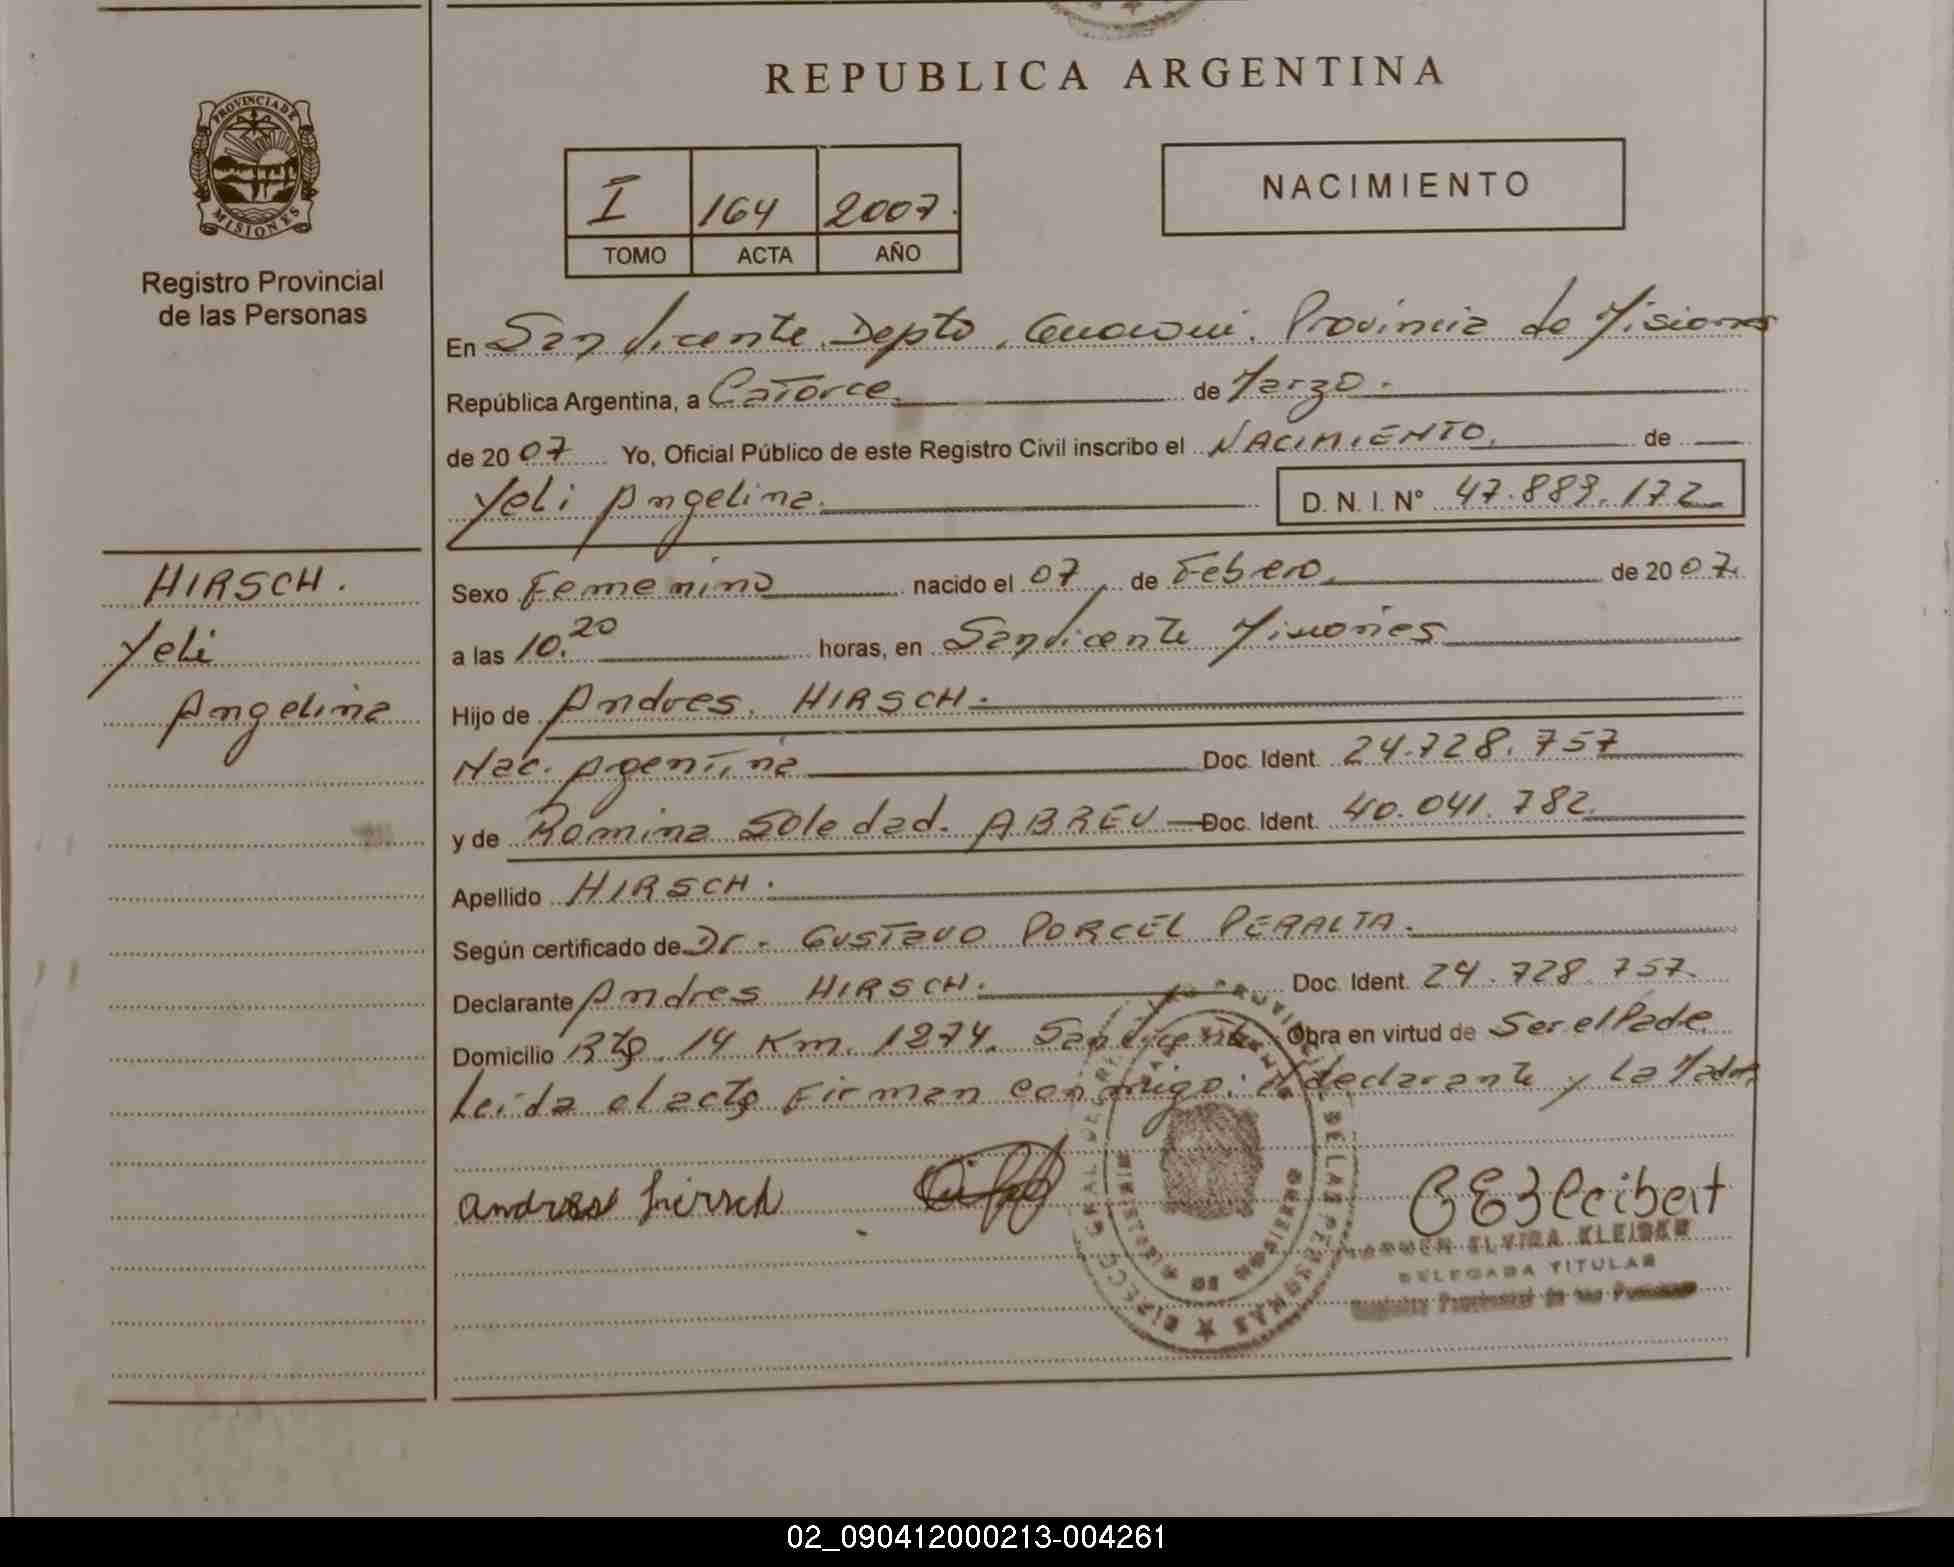 REPUBLICA ARGENTINA
PROVINCIA DE
MISIONES
Registro Provincial
de las Personas
I 164 2007.
TOMO ACTA AÑO
NACIMIENTO
En San Vicente Depto. Guarani. Provincia de Misiones
República Argentina, a Catorce de Marzo.
de 2007 Yo, Oficial Público de este Registro Civil inscribo el NACIMIENTO. de
Yeli Angelina. D. N. I. N° 47.889.172
HIRSCH.
Yeli
Angelina
Sexo Femenino nacido el 07 de Febero de 2007.
a las 10.20 horas, en San Vicente Misiones
Hijo de Andres. HIRSCH.
Nac. Agentina Doc. Ident. 24.728.757
y de Romina Soledad. ABREU Doc. Ident. 40.041.782
Apellido HIRSCH.
Según certificado de Dr. GUSTAVO PORCEL PERALTA.
Declarante Andres HIRSCH. Doc. Ident. 24.728.757.
Domicilio Rta. 14 Km. 1274. San Vicente Obra en virtud de Ser el Pade.
Leida el acta Firman conmigo: el declarante y La Madre
andres hirsch
CEKleibert
ELVIRA KLEIBER
DELEGADA TITULAR
Registro Provincial de las Personas
DE LAS PERSONAS
02_090412000213-004261